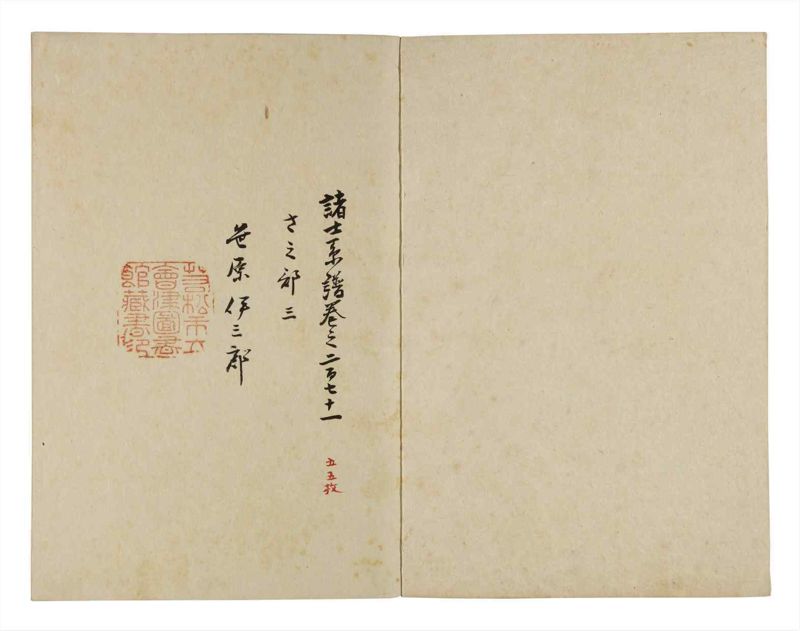 諸士系譜巻之二百七十一
五五枚
さ之部三
笹原伊三郎
若松市立
會津圖書
館藏書印